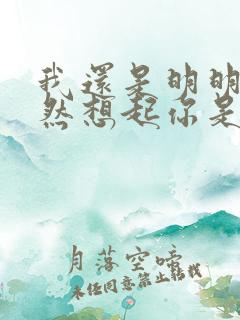 我還是明明
然想起你是
月落空啼
未经同意禁止转载